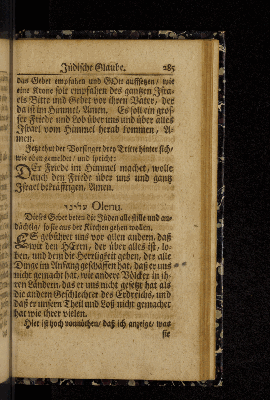 Jüdische Glaube. 285
das Gebet empfahen und GOtt auffsetzen / wie
eine Krone soll empfahen des gantzen Isra-
els Bitte und Gebet vor ihren Vater, der
da ist im Himmel, Amen. Es soll ein gros-
ser Friede und Lob über uns und über alles
Israel vom Himmel herab kommen, A-
men.
Jetzt thut der Vorsinger drey Tritte hinter sich,
wie oben gemeldet / und spricht:
DEr Friede im Himmel machet, wolle
auch den Friede über uns und gantz
Israel bekräfftigen, Amen.
עלינו Olenu.
Dieses Gebet beten die Jüden alle stille und an-
dächtig / so sie aus der Kirchen gehen wollen.
ES gebühret uns vor allen andern, daß
wir den HErrn, der über alles ist, lo-
ben, und dem die Herrligkeit geben, der alle
Dinge im Anfang geschaffen hat, daß er uns
nicht gemacht hat, wie andere Völcker in ih-
ren Ländern, das er uns nicht gesetzt hat als
die andern Geschlechter des Erdreichs, und
daß er unsern Theil und Loß nicht gemachet
hat wie ihrer vielen.
Hier ist hoch vonnöthen / daß ich anzeige / was
sie